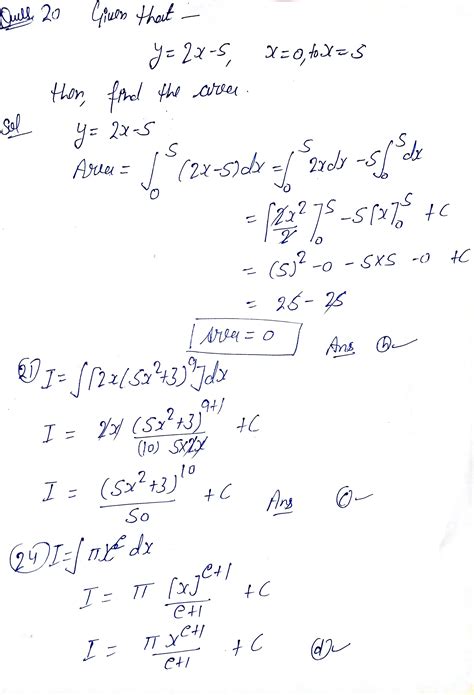 Ques 20 Given that -
y = 2x-5, x=0, to x=5
then, find the area.
Sol y = 2x-5
Area = ∫₀⁵ (2x-5)dx = ∫₀⁵ 2xdx - 5∫₀⁵ dx
= [2x²/2]₀⁵ - 5[x]₀⁵ + C
= (5)² - 0 - 5x5 - 0 + C
= 25 - 25
Area = 0 Ans (b)
(21) I = ∫[2x(5x²+3)⁹]dx
I = 2x (5x²+3)⁹⁺¹ / (10) 5x2x + C
I = (5x²+3)¹⁰ / 50 + C Ans (c)
(24) I = ∫πxᵉ dx
I = π [x]ᵉ⁺¹ / e+1 + C
I = πxᵉ⁺¹ / e+1 + C (d)